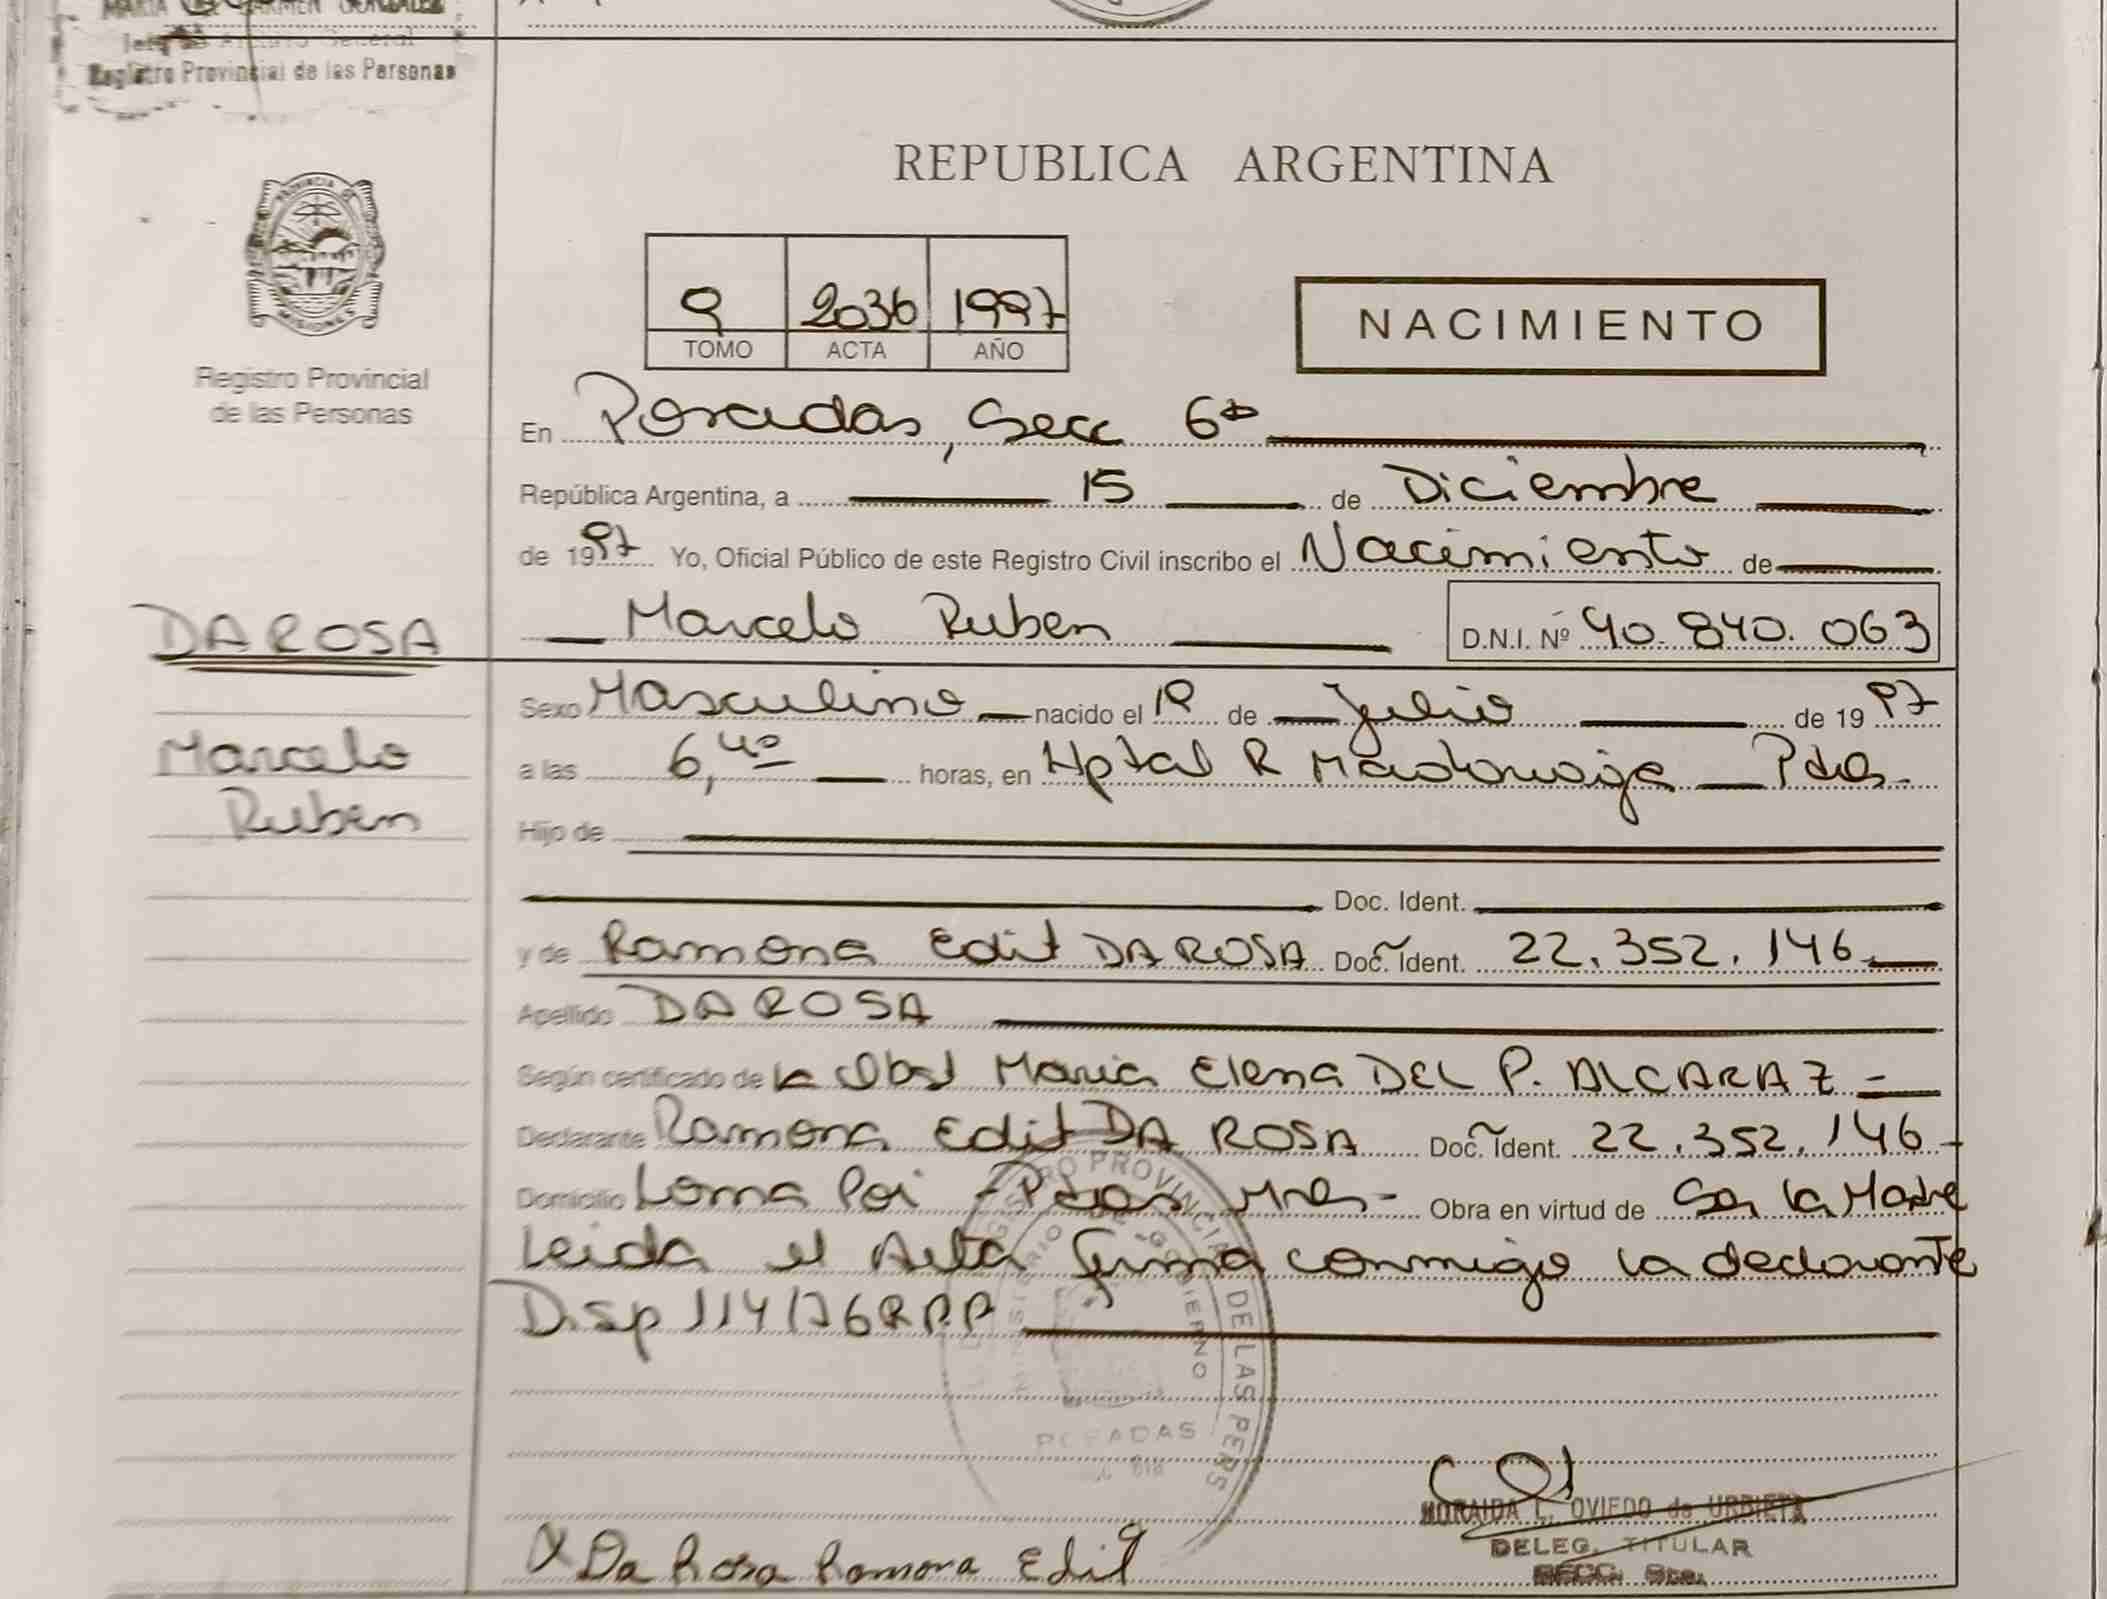 MARIA DEL CARMEN GONZALEZ
Archivo General
Registro Provincial de las Personas
REPUBLICA ARGENTINA
PROVINCIA DE
MISIONES
Registro Provincial
de las Personas
9 2036 1997
TOMO ACTA AÑO
NACIMIENTO
En Posadas, Secc 6a
República Argentina, a 15 de Diciembre
de 1997 Yo, Oficial Público de este Registro Civil inscribo el Nacimiento de
DA ROSA
Marcelo Ruben D.N.I. Nº 40.840.063
Sexo Masculino nacido el 19 de Julio de 1997
Marcelo
Ruben
a las 6,40 horas, en Hptal R Madariaga Pdas-
Hijo de
Doc. Ident.
y de Ramona Edit DA ROSA Doc. Ident. 22.352.146
Apellido DA ROSA
Según certificado de la Obst Maria Elena DEL P. ALCARAZ -
Declarante Ramona Edit DA ROSA Doc. Ident. 22.352.146-
Domicilio Loma Poi - Pdas Mnes- Obra en virtud de Ser la Madre
Leida el Acta firma conmigo la declarante
Disp 114/76 RPP
REGISTRO PROVINCIAL DE LAS PERS
MINISTERIO DE GOBIERNO
POSADAS
X Da Rosa Ramona Edit
MORAIDA L. OVIEDO de URBIETA
DELEG. TITULAR
SECC. 6ta.